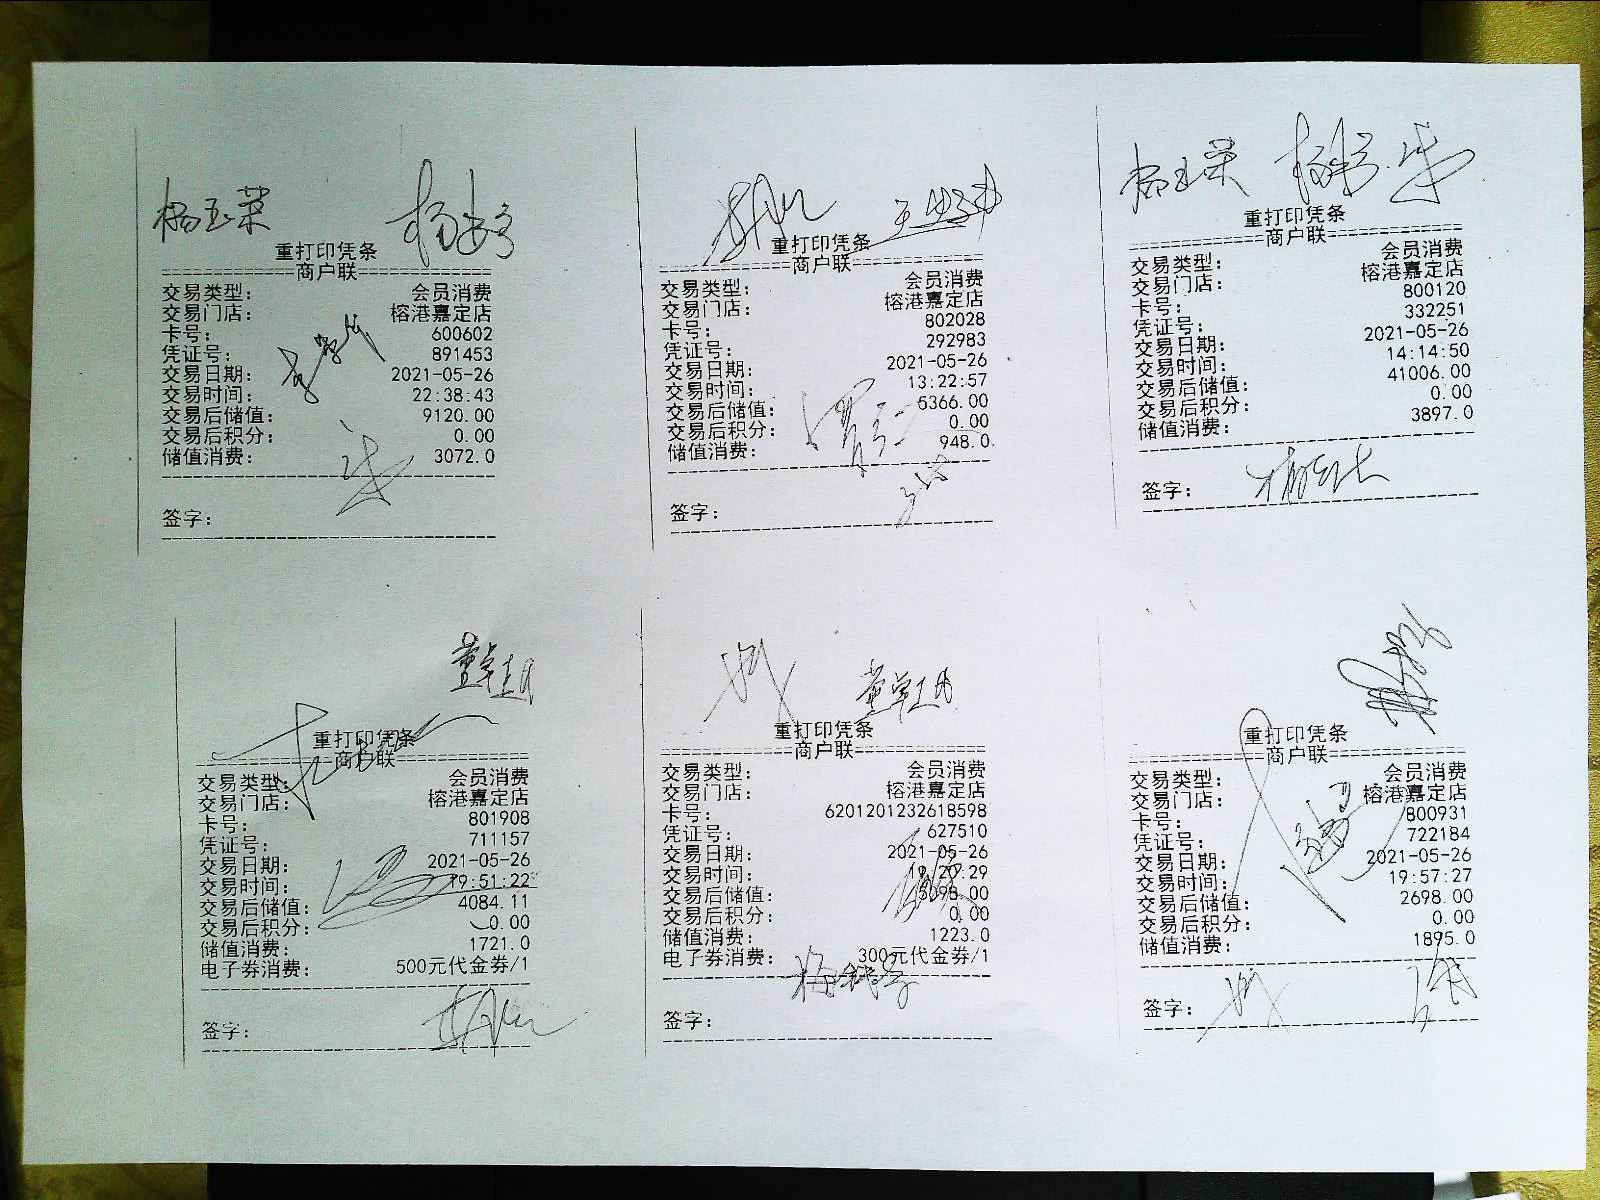 杨玉荣
重打印凭条
商户联
交易类型: 会员消费
交易门店: 榕港嘉定店
卡号: 600602
凭证号: 891453
交易日期: 2021-05-26
交易时间: 22:38:43
交易后储值: 9120.00
交易后积分: 0.00
储值消费: 3072.0
签字:
重打印凭条
商户联
交易类型: 会员消费
交易门店: 榕港嘉定店
卡号: 802028
凭证号: 292983
交易日期: 2021-05-26
交易时间: 13:22:57
交易后储值: 5366.00
交易后积分: 0.00
储值消费: 948.0
签字:
杨玉荣
重打印凭条
商户联
交易类型: 会员消费
交易门店: 榕港嘉定店
卡号: 800120
凭证号: 332251
交易日期: 2021-05-26
交易时间: 14:14:50
交易后储值: 41006.00
交易后积分: 0.00
储值消费: 3897.0
签字:
重打印凭条
商户联
交易类型: 会员消费
交易门店: 榕港嘉定店
卡号: 801908
凭证号: 711157
交易日期: 2021-05-26
交易时间: 19:51:22
交易后储值: 4084.11
交易后积分: 0.00
储值消费: 1721.0
电子券消费: 500元代金券/1
签字:
重打印凭条
商户联
交易类型: 会员消费
交易门店: 榕港嘉定店
卡号: 6201201232618598
凭证号: 627510
交易日期: 2021-05-26
交易时间:
交易后储值:
交易后积分: 0.00
储值消费: 1223.0
电子券消费: 300元代金券/1
签字:
重打印凭条
商户联
交易类型: 会员消费
交易门店: 榕港嘉定店
卡号: 800931
凭证号: 722184
交易日期: 2021-05-26
交易时间: 19:57:27
交易后储值: 2698.00
交易后积分: 0.00
储值消费: 1895.0
签字: